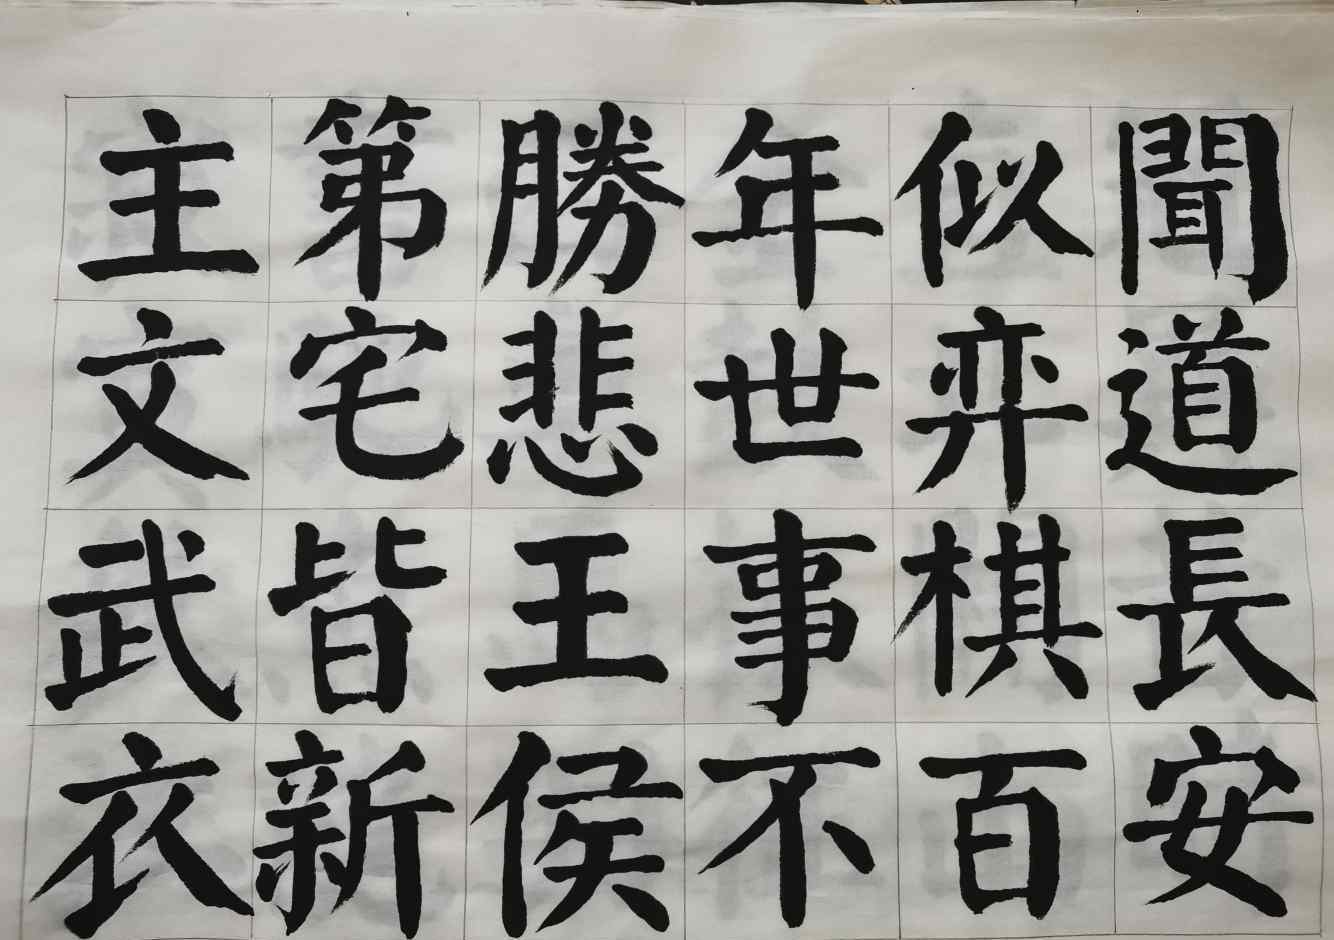 聞道長安
似弈棋百
年世事不
勝悲王侯
第宅皆新
主文武衣